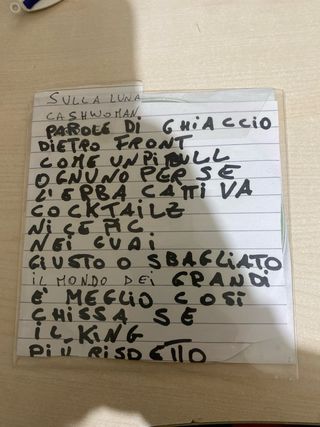 SULLA LUNA
CASHWOMAN
PAROLE DI GHIACCIO
DIETRO FRONT
COME UN PITBULL
OGNUNO PER SE
L'ERBA CATTIVA
COCKTAILZ
NICE PIC
NEI GUAI
GIUSTO O SBAGLIATO
IL MONDO DEI GRANDI
E' MEGLIO COSI
CHISSA SE
IL KING
PIU RISPETTO